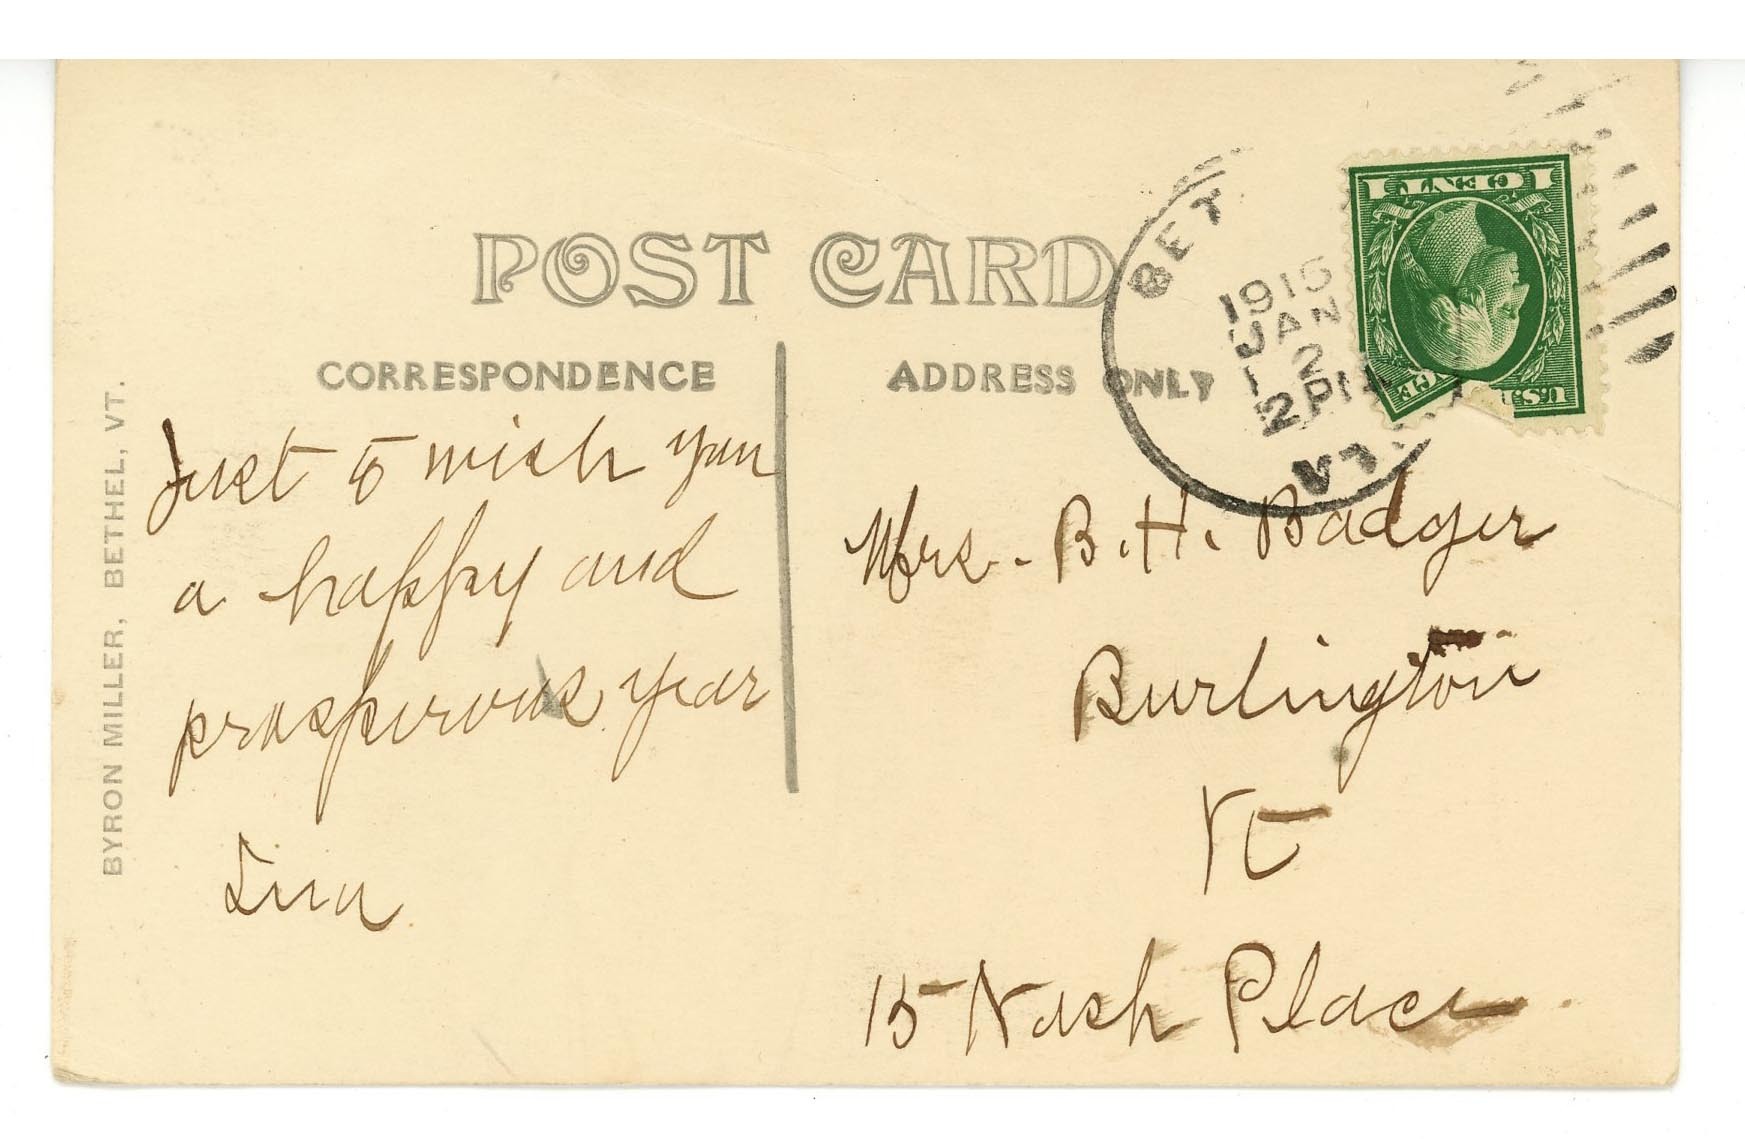 POST CARD
CORRESPONDENCE
ADDRESS ONLY
BYRON MILLER, BETHEL, VT.
Just to wish you
a happy and
prosperous year
BET
1915
JAN
2
2PM
VT.
1 CENT 1
U.S.
GE
Mrs. B. H. Badger
Burlington
Vt
15 Nash Place